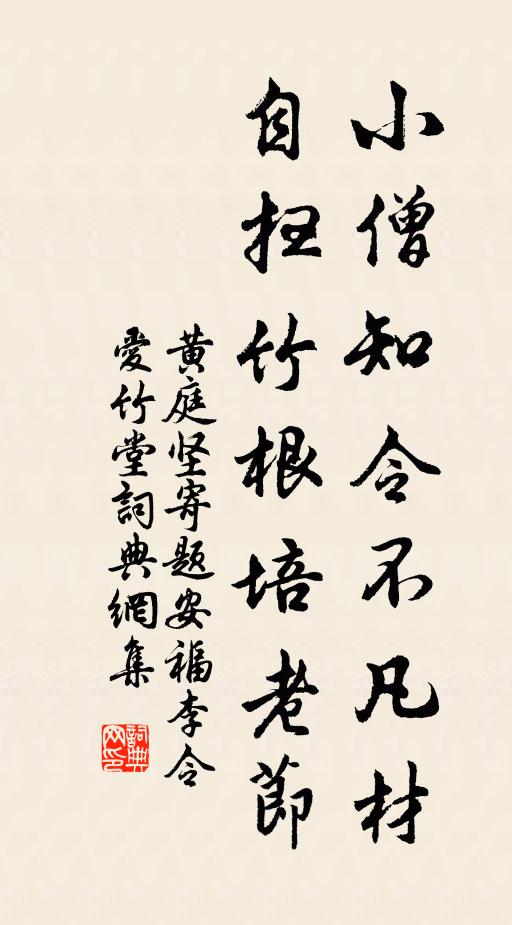 小僧知令不凡材
自扫竹根培老節
黄庭坚寄题安福李令
愛竹堂詞典網集
詞典网印